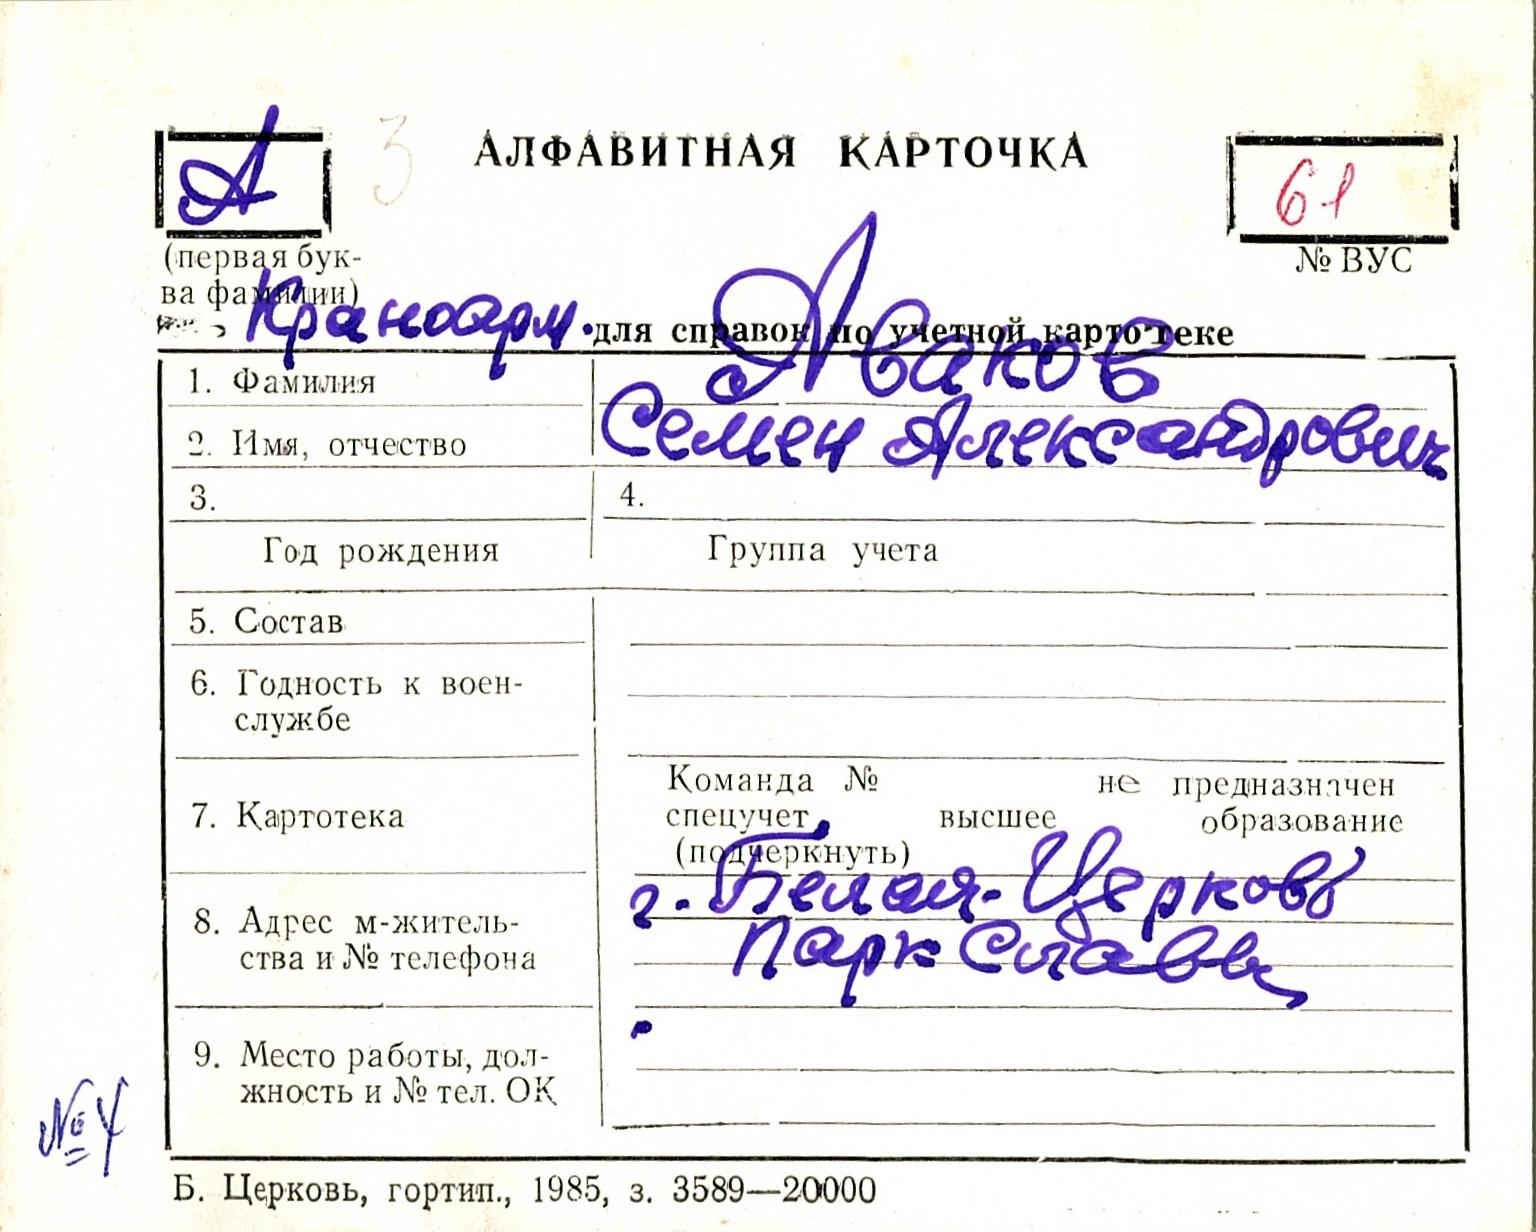 А 3 АЛФАВИТНАЯ КАРТОЧКА 61
(первая бук-
ва фамилии) № ВУС
Краноарм. для справок по учетной картотеке
1. Фамилия Аваков
2. Имя, отчество Семен Александрович
3. 4.
Год рождения Группа учета
5. Состав
6. Годность к воен-
службе
Команда № не предназначен
7. Картотека спецучет, высшее образование
(подчеркнуть)
г. Белая-Церковь
8. Адрес м-житель-
ства и № телефона Парк Славы
9. Место работы, дол-
жность и № тел. ОК
№ 4
Б. Церковь, гортип., 1985, з. 3589—20000